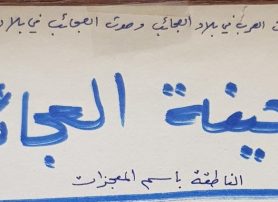 العرب في بلاد العجائب وصوت العجائب في بلاد
حيفة العجائ
الناطقة باسم المعجزات